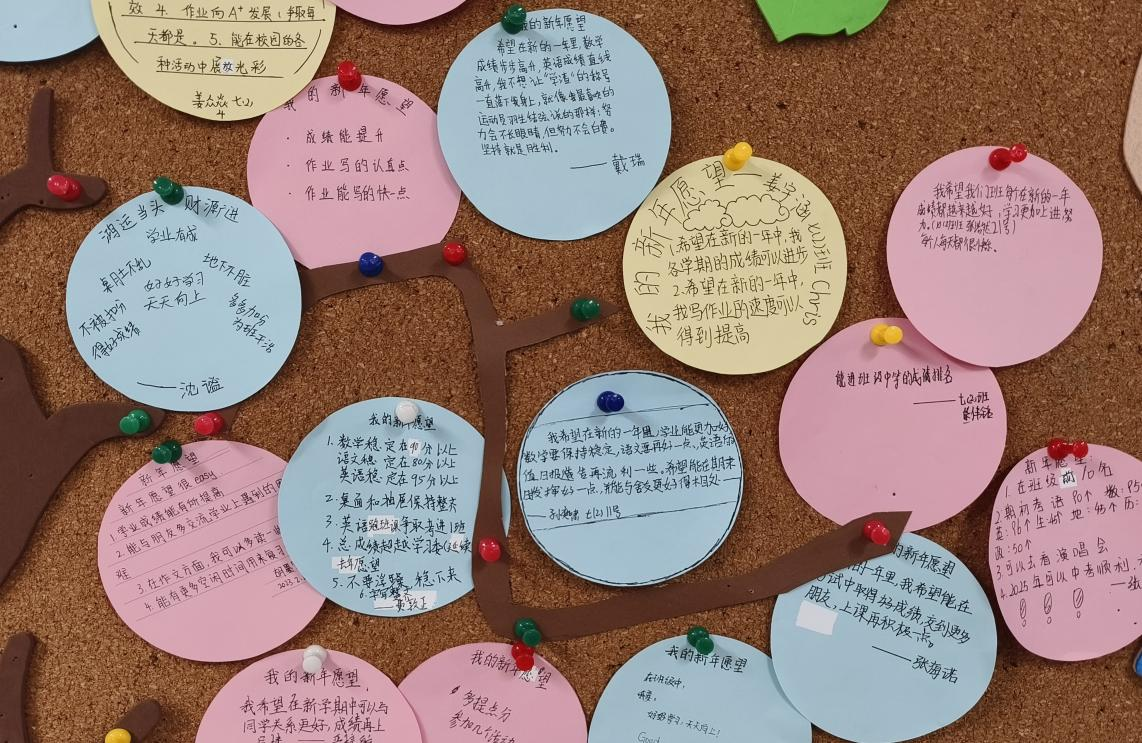 效 4. 作业向 A⁺ 发展，争取每
天都是。 5. 能在校园的各
种活动中展放光彩
姜众焱 七2)
4
我的新年愿望
· 成绩能提升
· 作业写的认真点
· 作业能写的快一点
我的新年愿望
希望在新的一年里，数学
成绩步步高升，英语成绩直线
高升，我不想让“学渣”的称号
一直落下我身上，就像我最喜欢的
运动员羽生结弦说的那样：努
力会不长眼睛，但努力不会白费。
坚持就是胜利。
—— 戴瑞
我的新年愿望——姜字涵 (2)班 Chris
1.希望在新的一年中，我
各学期的成绩可以进步
2.希望在新的一年中，
我写作业的速度可以
得到提高
我希望我们2班每个在新的一年
成绩都越来越好，学习更加上进努
力。
每个人每天都很快乐。
鸿运当头 财源广进
学业有成
桌肚不乱
地下不脏
好好学习
天天向上
不被扣分
得好成绩
多多加分
为班干活
——沈谧
能进班级中等的成绩排名
——七(2)班
新年愿望
新年愿望很easy
1.学业成绩能有所提高
2.能与朋多交流学业上遇到的困
难
3.在作文方面，我可以多读一
4.能有更多空闲时间用来
2023.2
我的新年愿望
1. 数学稳定在90分以上
语文稳定在80分以上
英语稳定在95分以上
2. 桌面和抽屉保持整齐
3. 英语跑班课争取考进1班
4. 总成绩超越学习委(延续
去年愿望
5. 不要浮躁，稳下来
6.字写整齐
——黄毅正
我希望在新的一年里,学业能更加好,
数学要保持稳定,语文要再好一点,英语的
值日报告再流利一些。希望能在期末
发挥好一点,并能与舍友更好得相处——
七(2) 11号
新年愿望
1. 在班级前10名
2. 期初考 语90↑ 数：95↑
英：96↑ 生：45↑ 地：45个 历：
政：50↑
3.可以去看演唱会
4.2025年可以中考顺利
——张
的新年愿望
的一年里，我希望能在
考试中取得好成绩，交到更多
朋友，上课再积极一点。
——张海诺
我的新年愿望
我希望在新学期中可以与
同学关系更好，成绩再上
我的新年愿望
多提点分
参加几个活动
我的新年愿望
在班级中，
好好学习，天天向上！
Good